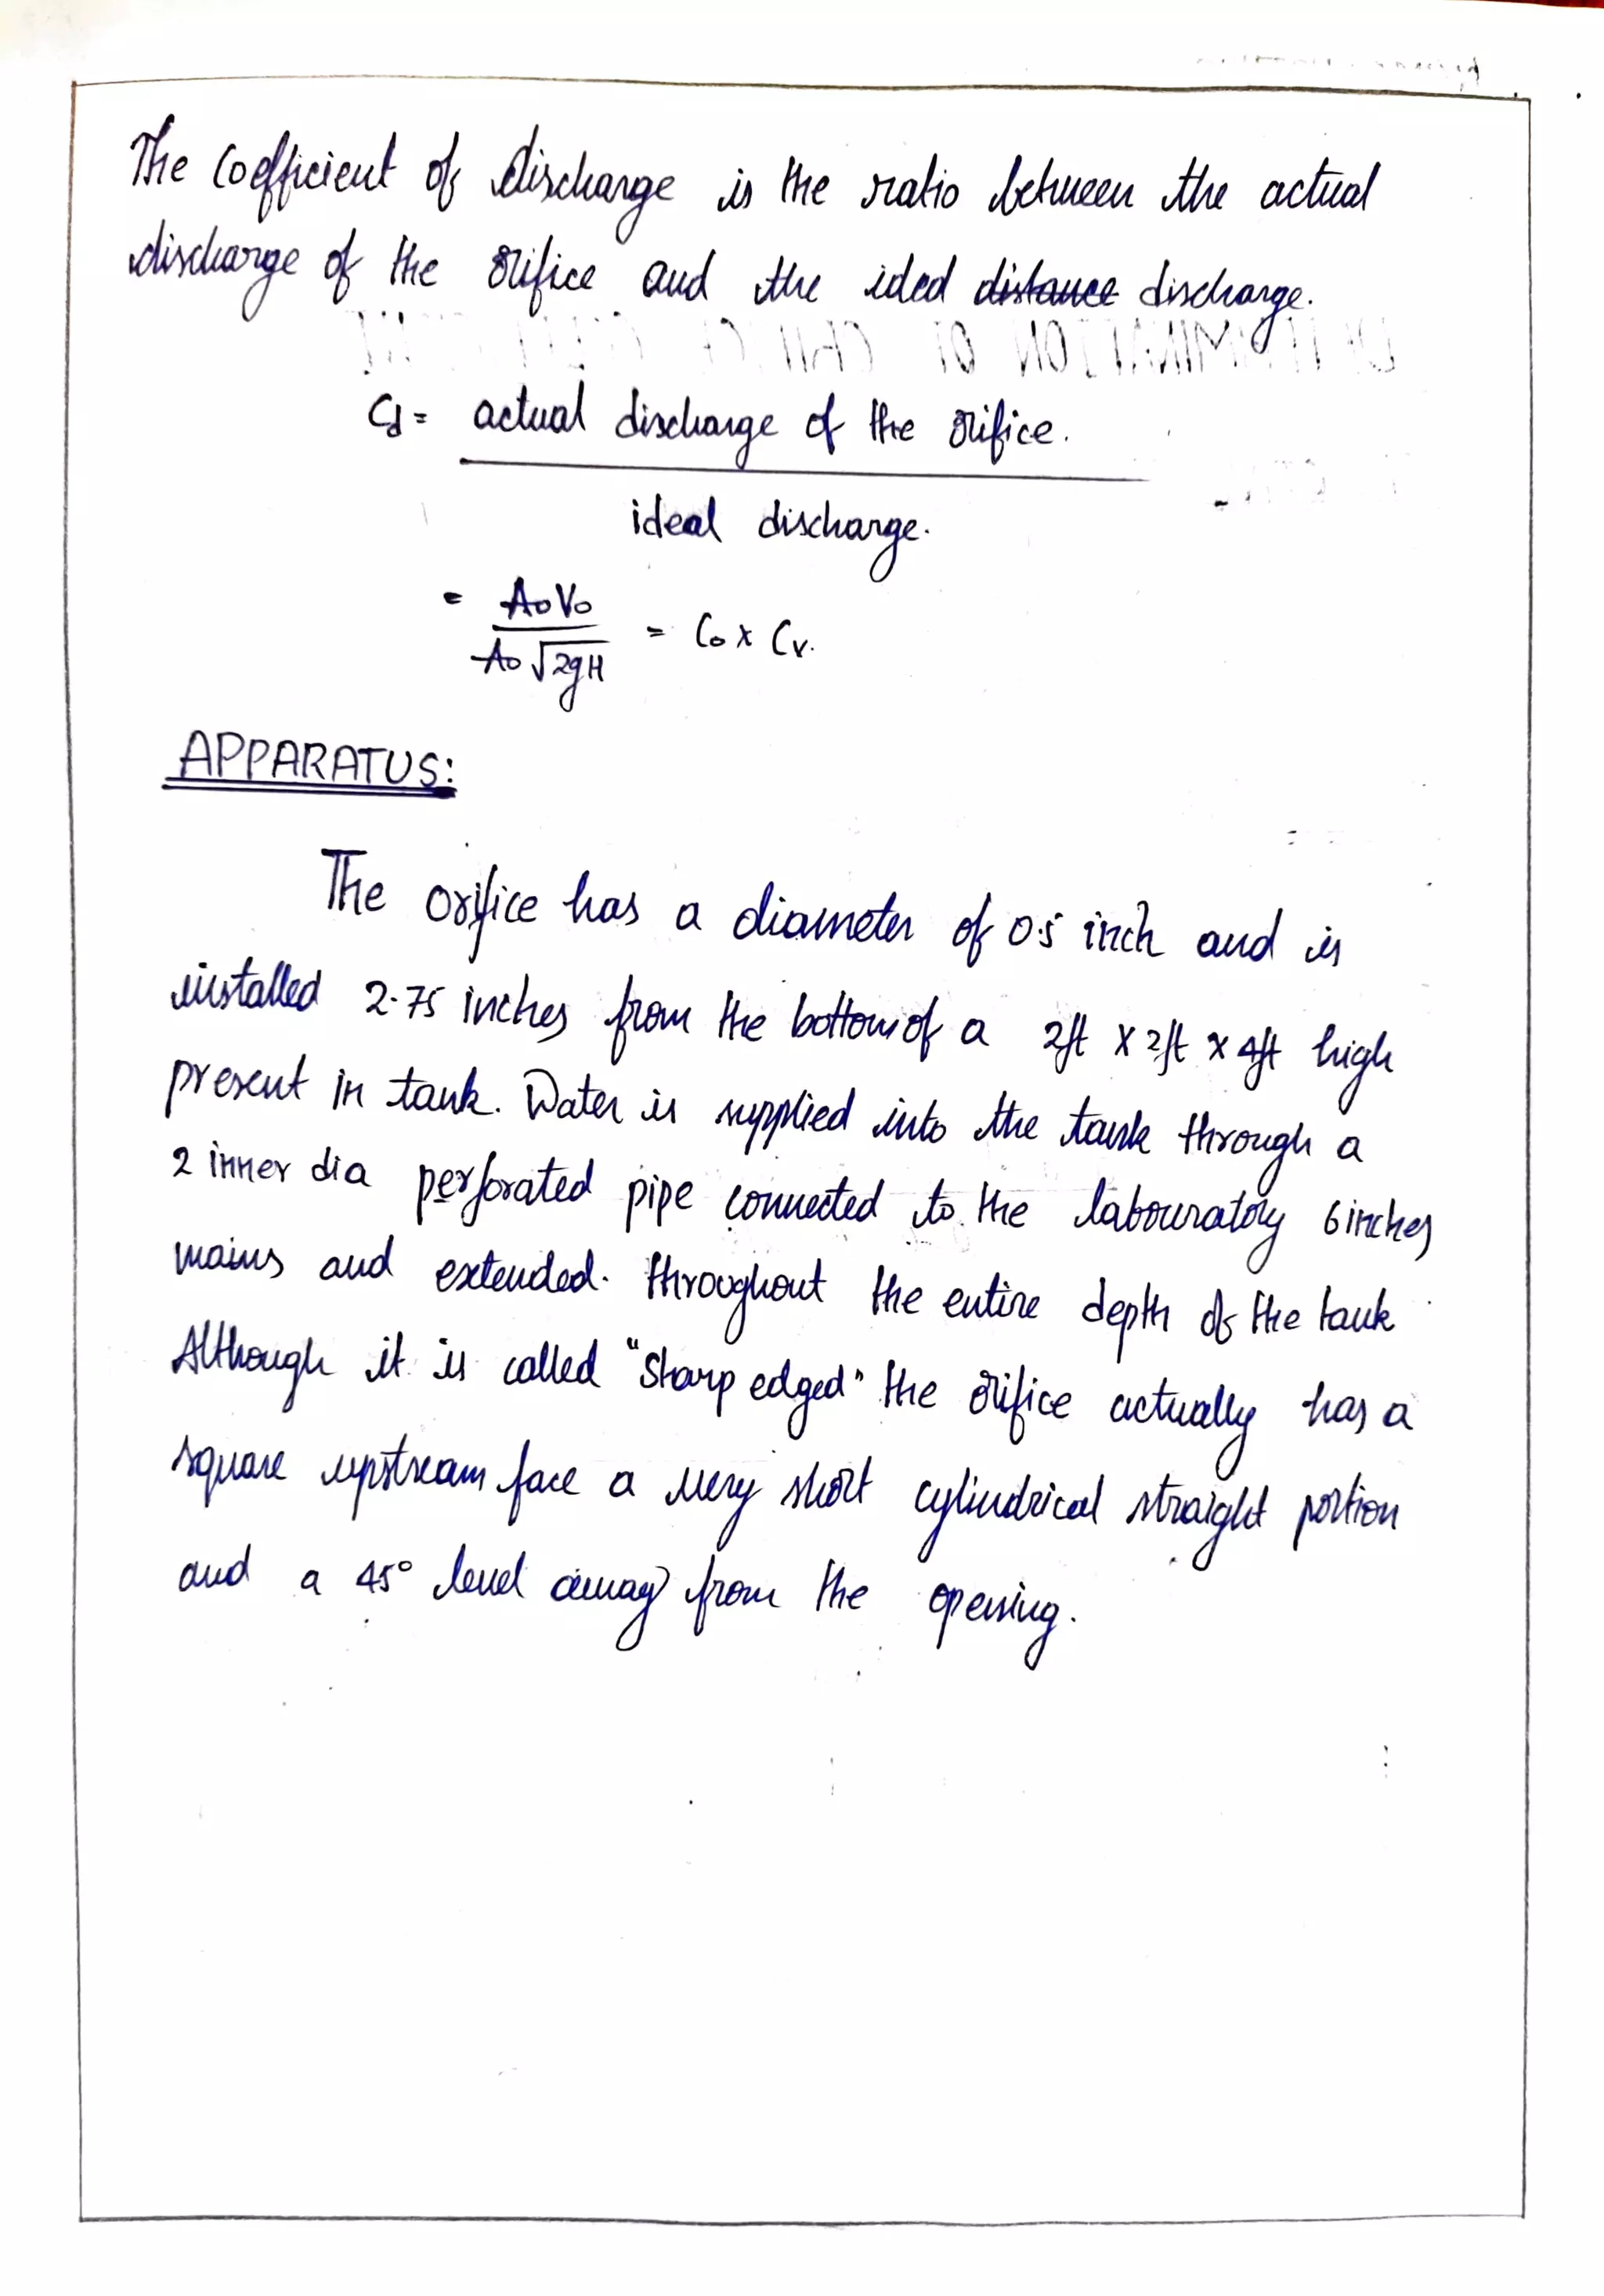 The Coefficient of discharge is the ratio between the actual
discharge of the orifice and the ided distance discharge.
Cd = actual discharge of the orifice.
ideal discharge.
= AoVo / Ao √2gH = Co x Cv.
APPARATUS:
The orifice has a diameter of 0.5 inch and is
installed 2.75 inches from the bottom of a 2ft x 2ft x 4ft high
present in tank. Water is supplied into the tank through a
2 inner dia perforated pipe connected to the labouratory 6 inches
mains and extended. throughout the entire depth of the tank
Although it is called "Sharp edged" the orifice actually has a
square upstream face a very short cylindrical straight portion
and a 45° level away from the opening.